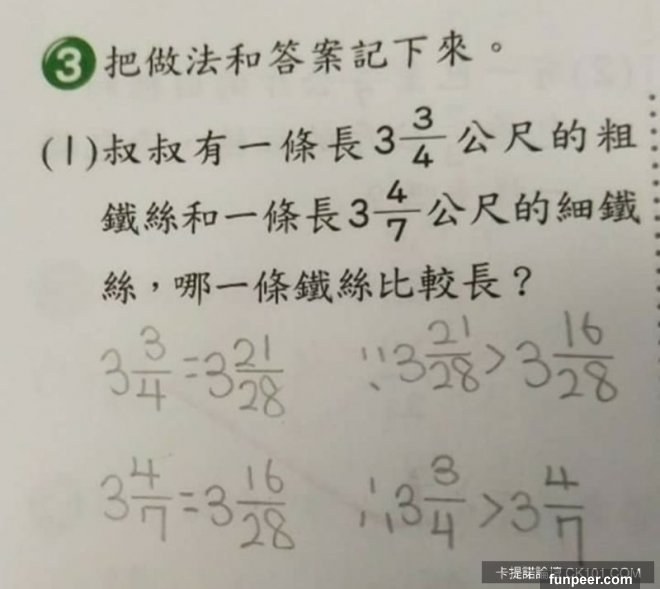 3 把做法和答案記下來。
(1)叔叔有一條長3 3/4 公尺的粗
鐵絲和一條長3 4/7 公尺的細鐵
絲，哪一條鐵絲比較長？
3 3/4 = 3 21/28 ∵ 3 21/28 > 3 16/28
3 4/7 = 3 16/28 ∴ 3 3/4 > 3 4/7
卡提諾論壇 CK101.COM
funpeer.com